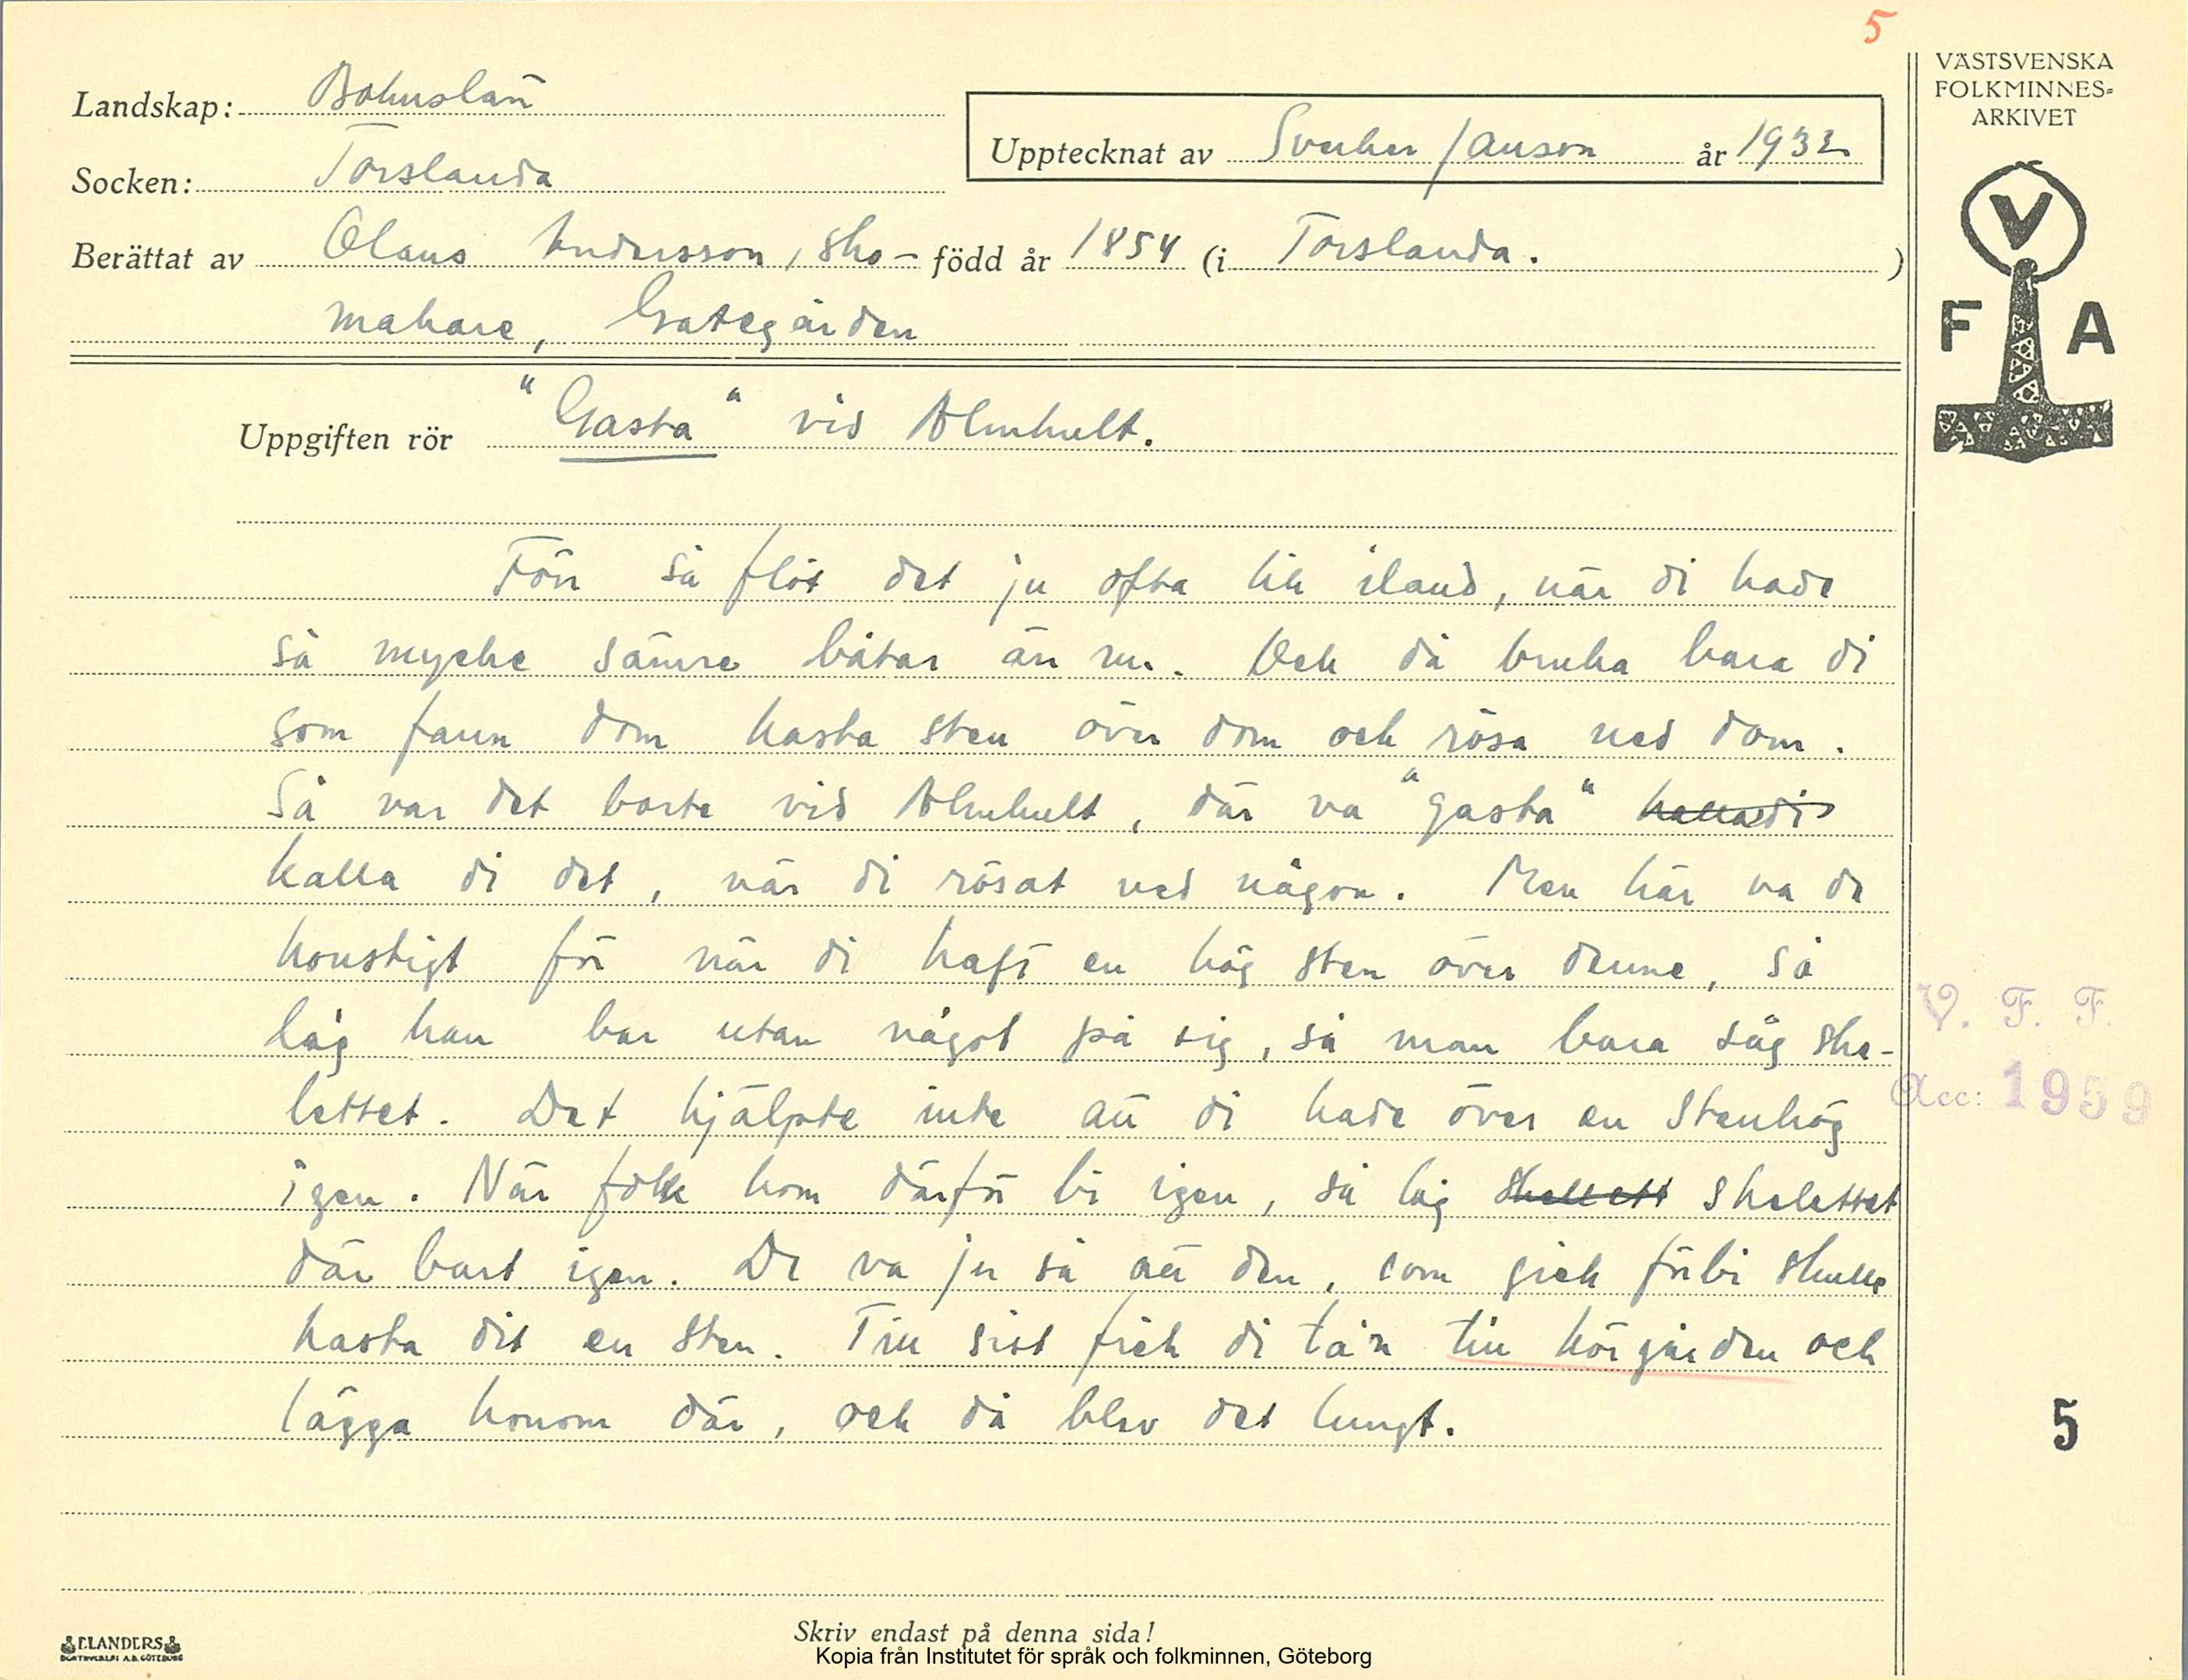 5
VÄSTSVENSKA
FOLKMINNES-
ARKIVET
Landskap: Bohuslän
Upptecknat av Sverker Janson år 1932
Socken: Torslanda
Berättat av Olaus Andersson, sko- född år 1854 (i Torslanda. )
makare, Gategården
V
F A
Uppgiften rör "Gasta" vid Almhult.
Förr så flöt det ju ofta lik iland, när di hade
så mycke sämre båtar än nu. Och då bruka bara di
som fann dom kasta sten över dom och rösa ned dom.
Så var det borte vid Almhult, där va "gasta" kalladi
kalla di det, när di rösat ned någon. Men här va de
konstigt för när di haft en hög sten över denne, så
låg han bar utan något på sig, så man bara såg ske-
lettet. Det hjälpte inte att di hade över en stenhög
igen. När folk kom därför bi igen, så låg skellett skelettet
där bart igen. De va ju så att den, som gick förbi skulle
kasta dit en sten. Till sist fick di ta'n till körgården och
lägga honom där, och då blev det lungt.
V. F. F.
Acc: 1959
5
ELANDERS
BOKTRYCKERI A.B. GÖTEBORG
Skriv endast på denna sida!
Kopia från Institutet för språk och folkminnen, Göteborg